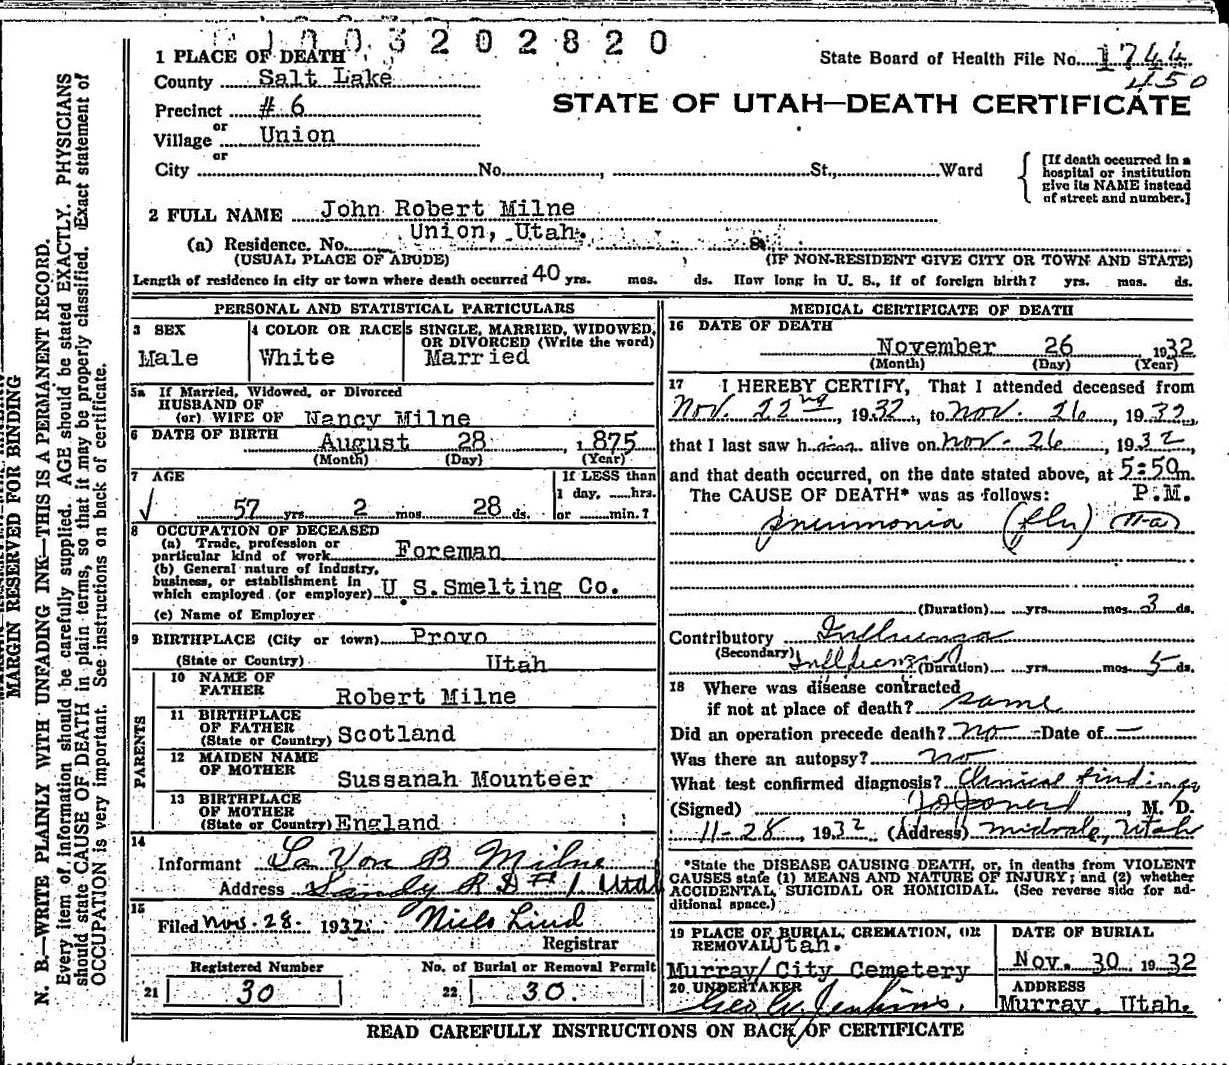 1003202820
1 PLACE OF DEATH
State Board of Health File No. 1744
450
County Salt Lake
Precinct # 6
STATE OF UTAH—DEATH CERTIFICATE
or
Village Union
or
City No. , St., Ward
[If death occurred in a hospital or institution give its NAME instead of street and number.]
2 FULL NAME John Robert Milne
(a) Residence. No. Union, Utah. S
(USUAL PLACE OF ABODE) (IF NON-RESIDENT GIVE CITY OR TOWN AND STATE)
Length of residence in city or town where death occurred 40 yrs. mos. ds. How long in U. S., if of foreign birth? yrs. mos. ds.
PERSONAL AND STATISTICAL PARTICULARS
3 SEX
Male
4 COLOR OR RACE
White
5 SINGLE, MARRIED, WIDOWED, OR DIVORCED (Write the word)
Married
5a If Married, Widowed, or Divorced
HUSBAND OF
(or) WIFE OF Nancy Milne
6 DATE OF BIRTH
August 28 1875
(Month) (Day) (Year)
7 AGE
57 yrs 2 mos 28 ds.
If LESS than
1 day, hrs.
or min.?
8 OCCUPATION OF DECEASED
(a) Trade, profession or
particular kind of work Foreman
(b) General nature of industry,
business, or establishment in
which employed (or employer) U.S.Smelting Co.
(c) Name of Employer
9 BIRTHPLACE (City or town) Provo
(State or Country) Utah
PARENTS
10 NAME OF FATHER Robert Milne
11 BIRTHPLACE OF FATHER (State or Country) Scotland
12 MAIDEN NAME OF MOTHER Sussanah Mounteer
13 BIRTHPLACE OF MOTHER (State or Country) England
14
Informant La Von B Milne
Address Sandy R D #1 Utah
15
Filed Nov. 28 1932 Niels Lind
Registrar
Registered Number
21 30
No. of Burial or Removal Permit
22 30.
MEDICAL CERTIFICATE OF DEATH
16 DATE OF DEATH
November 26 1932
(Month) (Day) (Year)
17 I HEREBY CERTIFY, That I attended deceased from
Nov. 22nd, 1932, to Nov. 26, 1932,
that I last saw him alive on Nov. 26, 1932,
and that death occurred, on the date stated above, at 5:50 m.
The CAUSE OF DEATH* was as follows: P.M.
Pneumonia (flu) 11-a
(Duration) yrs. mos 3 ds.
Contributory Influenza
(Secondary) Influenza (Duration) yrs. mos 5 ds.
18 Where was disease contracted
if not at place of death? same
Did an operation precede death? no Date of —
Was there an autopsy? no
What test confirmed diagnosis? Clinical findings
(Signed) M. D.
11-28, 1932 (Address) Midvale, Utah
*State the DISEASE CAUSING DEATH, or, in deaths from VIOLENT
CAUSES state (1) MEANS AND NATURE OF INJURY; and (2) whether
ACCIDENTAL, SUICIDAL OR HOMICIDAL. (See reverse side for ad-
ditional space.)
19 PLACE OF BURIAL, CREMATION, OR
REMOVAL Utah.
Murray/City Cemetery
DATE OF BURIAL
Nov. 30 1932
20 UNDERTAKER
Geo W. Jenkins.
ADDRESS
Murray, Utah.
READ CAREFULLY INSTRUCTIONS ON BACK OF CERTIFICATE
MARGIN RESERVED FOR BINDING
N. B.—WRITE PLAINLY WITH UNFADING INK—THIS IS A PERMANENT RECORD.
Every item of information should be carefully supplied. AGE should be stated EXACTLY. PHYSICIANS
should state CAUSE OF DEATH in plain terms, so that it may be properly classified. Exact statement of
OCCUPATION is very important. See instructions on back of certificate.